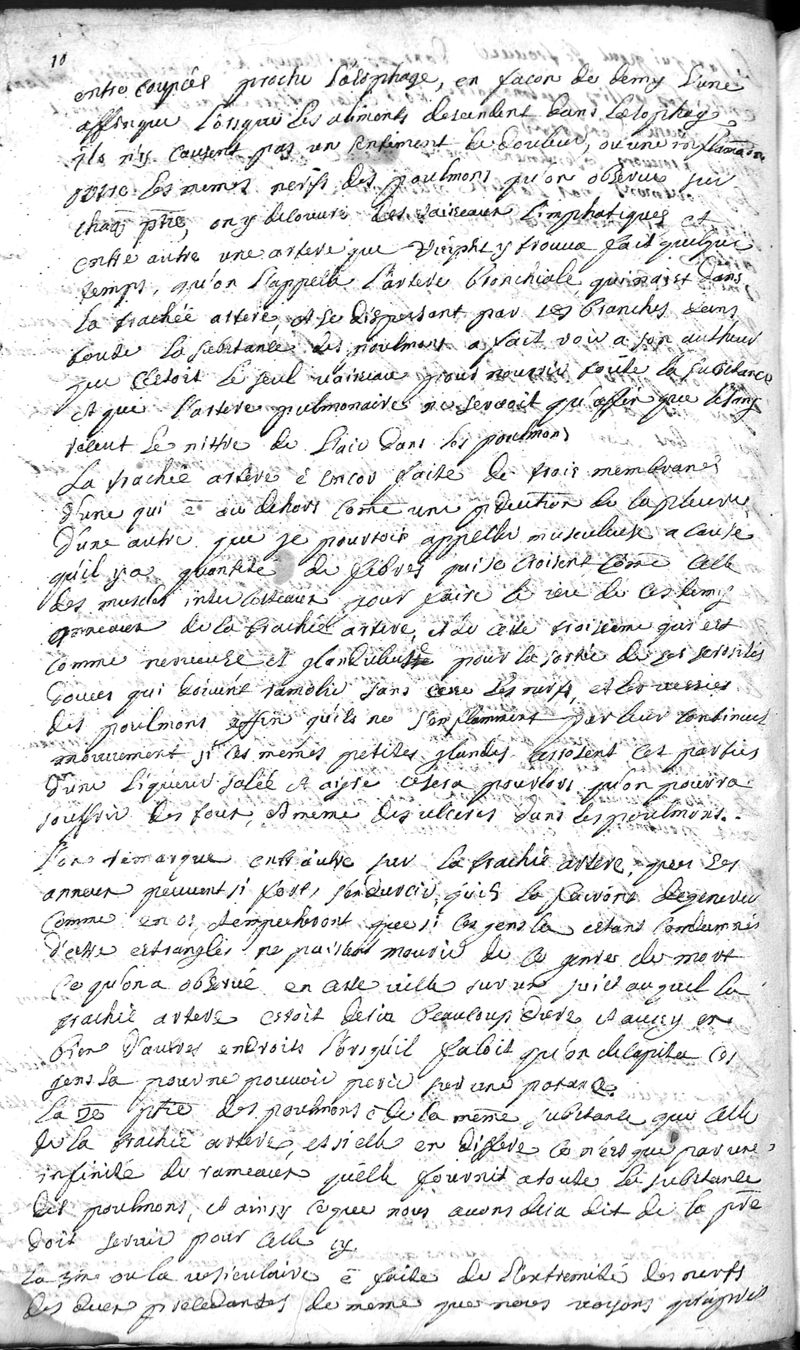 10
entre coupées proche l'œsophage, en facon de demy lune
affin que lorsque les aliments descendent dans l'œsophage
ils n'y causent pas un sentiment de douleur, ou une inflamãon
outre les memes nerfs des poulmons qu'on observe sur
chaq̃ ptie, on y decouvre des vaiseaux limphatiques et
entre autre une artere que y trouva fait quelque
temps, qu'on l'appelle l'artere bronchiale qui nait dans
la trachée artere, et se dispersant par ses branches dans
toute la substance des poulmons a fait voir a son autheur
que c'etoit le seul vaiseau pour nourrir toute la substance
et que l'artere pulmonaire ne servoit qu'affin que le sang
receut le nittre de l'air dans les poulmons
La trachée artere ẽ encor faite de trois membranes
d'une qui ẽ au dehors comẽ une pduction de la pleure
d'une autre que je pourrois appeller musculeuse a cause
qu'il y a quantité de fibres qui se croisent comẽ celle
des muscles inter costeaux pour faire le de ces demy
anneaux de la trachée artere, et de cette troisieme qui est
comme nerveuse et glanduleuse pour la sortie de ses serosités
douces qui doivent ramolir sans cesse les nerfs, et les vessies
des poulmons affin qu'ils ne s'enflamment par leur continuel
mouvement si ces mêmes petites glandes arrosent ces parties
d'une liqueur salée et aigre ce sera pourlors qu'on pourra
souffrir des toux, et meme des ulceres dans les poulmons.
l'on remarque entr'autre sur la trachée artere, que les
anneaux peuvent si fort s'endurcir, qu'ils la fairont degenerer
comme en os, et empecheront que si ces gens la estans condamnés
d'estre estranglés ne puissent mourir de ce genre de mort
ce qu'on a observé en cete ville sur un suiet auquel la
trachée artere estoit devenu beaucoup dure et aussy en
bien d'autres endroits lorsqu'il faloit qu'on decapita ces
gens la pour ne pouvoir perir par une potance.
La 2e ptie des poulmons ẽ de la même substance que celle
de la trachée artere, et si elle en differe ce n'est que par une
infinité de rameaux qu'elle fournit a toute la substance
des poulmons, et ainsy ce que nous avons deia dit de la pre
doit servir pour celle cy.
La 3me ou la vesiculaire ẽ faite de l'extremité des nerfs
des deux precedantes de meme que nous voyons